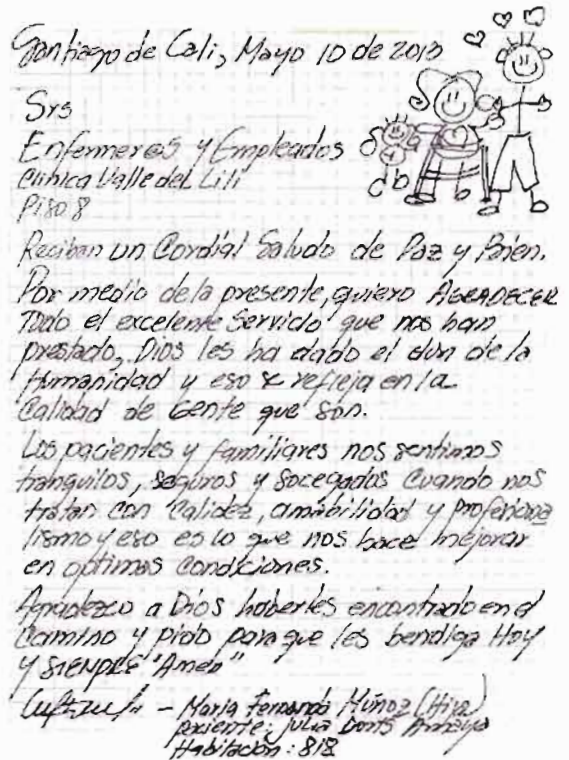 Santiago de Cali, Mayo 10 de 2013
Srs
Enfermer@s y Empleados
Clinica Valle del Lili
Piso 8
Reciban un Cordial Saludo de Paz y Bien.
Por medio de la presente, quiero AGRADECER
Todo el excelente Servicio que nos han
prestado, Dios les ha dado el don de la
Humanidad y eso se refleja en la
Calidad de Gente que son.
Los pacientes y familiares nos sentimos
tranquilos, seguros y socegados Cuando nos
tratan con Calidez, amabilidad y profeciona
lismo y eso es lo que nos hace mejorar
en optimas Condiciones.
Agradezco a Dios haberles encontrado en el
Camino y pido para que les bendiga Hoy
y SIEMPRE "Amen"
- Maria Fernanda Muñoz (Hija)
paciente: Julia Amaya
Habitación: 818